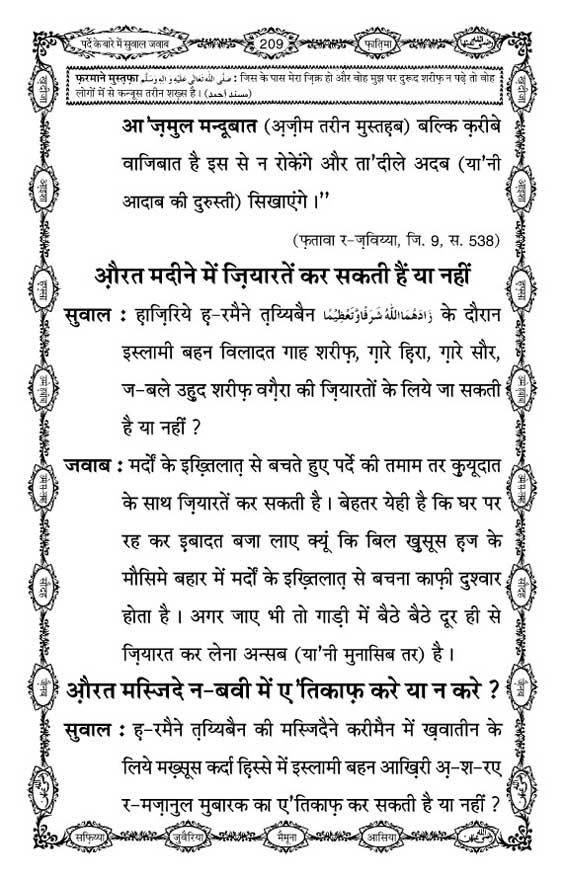 पर्दे के बारे में सुवाल जवाब
209
फ़ातिमा
फ़रमाने मुस्तफ़ा صَلَّى اللّٰهُ تَعَالٰى عَلَيْهِ وَاٰلِهٖ وَسَلَّم : जिस के पास मेरा ज़िक्र हो और वोह मुझ पर दुरूद शरीफ़ न पढ़े तो वोह
लोगों में से कन्जूस तरीन शख़्स है। (مسند احمد)
आ'ज़मुल मन्दूबात (अ़ज़ीम तरीन मुस्तह़ब) बल्कि क़रीबे
वाजिबात है इस से न रोकेंगे और ता'दीले अदब (या'नी
आदाब की दुरुस्ती) सिखाएंगे।"
(फ़तावा र-ज़विय्या, जि. 9, स. 538)
औ़रत मदीने में ज़ियारतें कर सकती हैं या नहीं
सुवाल : ह़ाज़िरिये ह़-रमैने त़य्यिबैन زَادَهُمَا اللّٰهُ شَرَفًا وَّتَعْظِيْمًا के दौरान
इस्लामी बहन विलादत गाह शरीफ़, ग़ारे ह़िरा, ग़ारे सौर,
ज-बले उह़ुद शरीफ़ वग़ैरा की ज़ियारतों के लिये जा सकती
है या नहीं ?
जवाब : मर्दों के इख़्तिलात़ से बचते हुए पर्दे की तमाम तर क़ुयूदात
के साथ ज़ियारतें कर सकती है। बेहतर येही है कि घर पर
रह कर इ़बादत बजा लाए क्यूं कि बिल ख़ुसूस ह़ज के
मौसिमे बहार में मर्दों के इख़्तिलात़ से बचना काफ़ी दुश्वार
होता है। अगर जाए भी तो गाड़ी में बैठे बैठे दूर ही से
ज़ियारत कर लेना अन्सब (या'नी मुनासिब तर) है।
औ़रत मस्जिदे न-बवी में ए'तिकाफ़ करे या न करे ?
सुवाल : ह़-रमैने त़य्यिबैन की मस्जिदैने करीमैन में ख़वातीन के
लिये मख़्सूस कर्दा हि़स्से में इस्लामी बहन आख़िरी अ़-श-रए
र-मज़ानुल मुबारक का ए'तिकाफ़ कर सकती है या नहीं ?
सफ़िय्या
जुवैरिया
मैमूना
आसिया